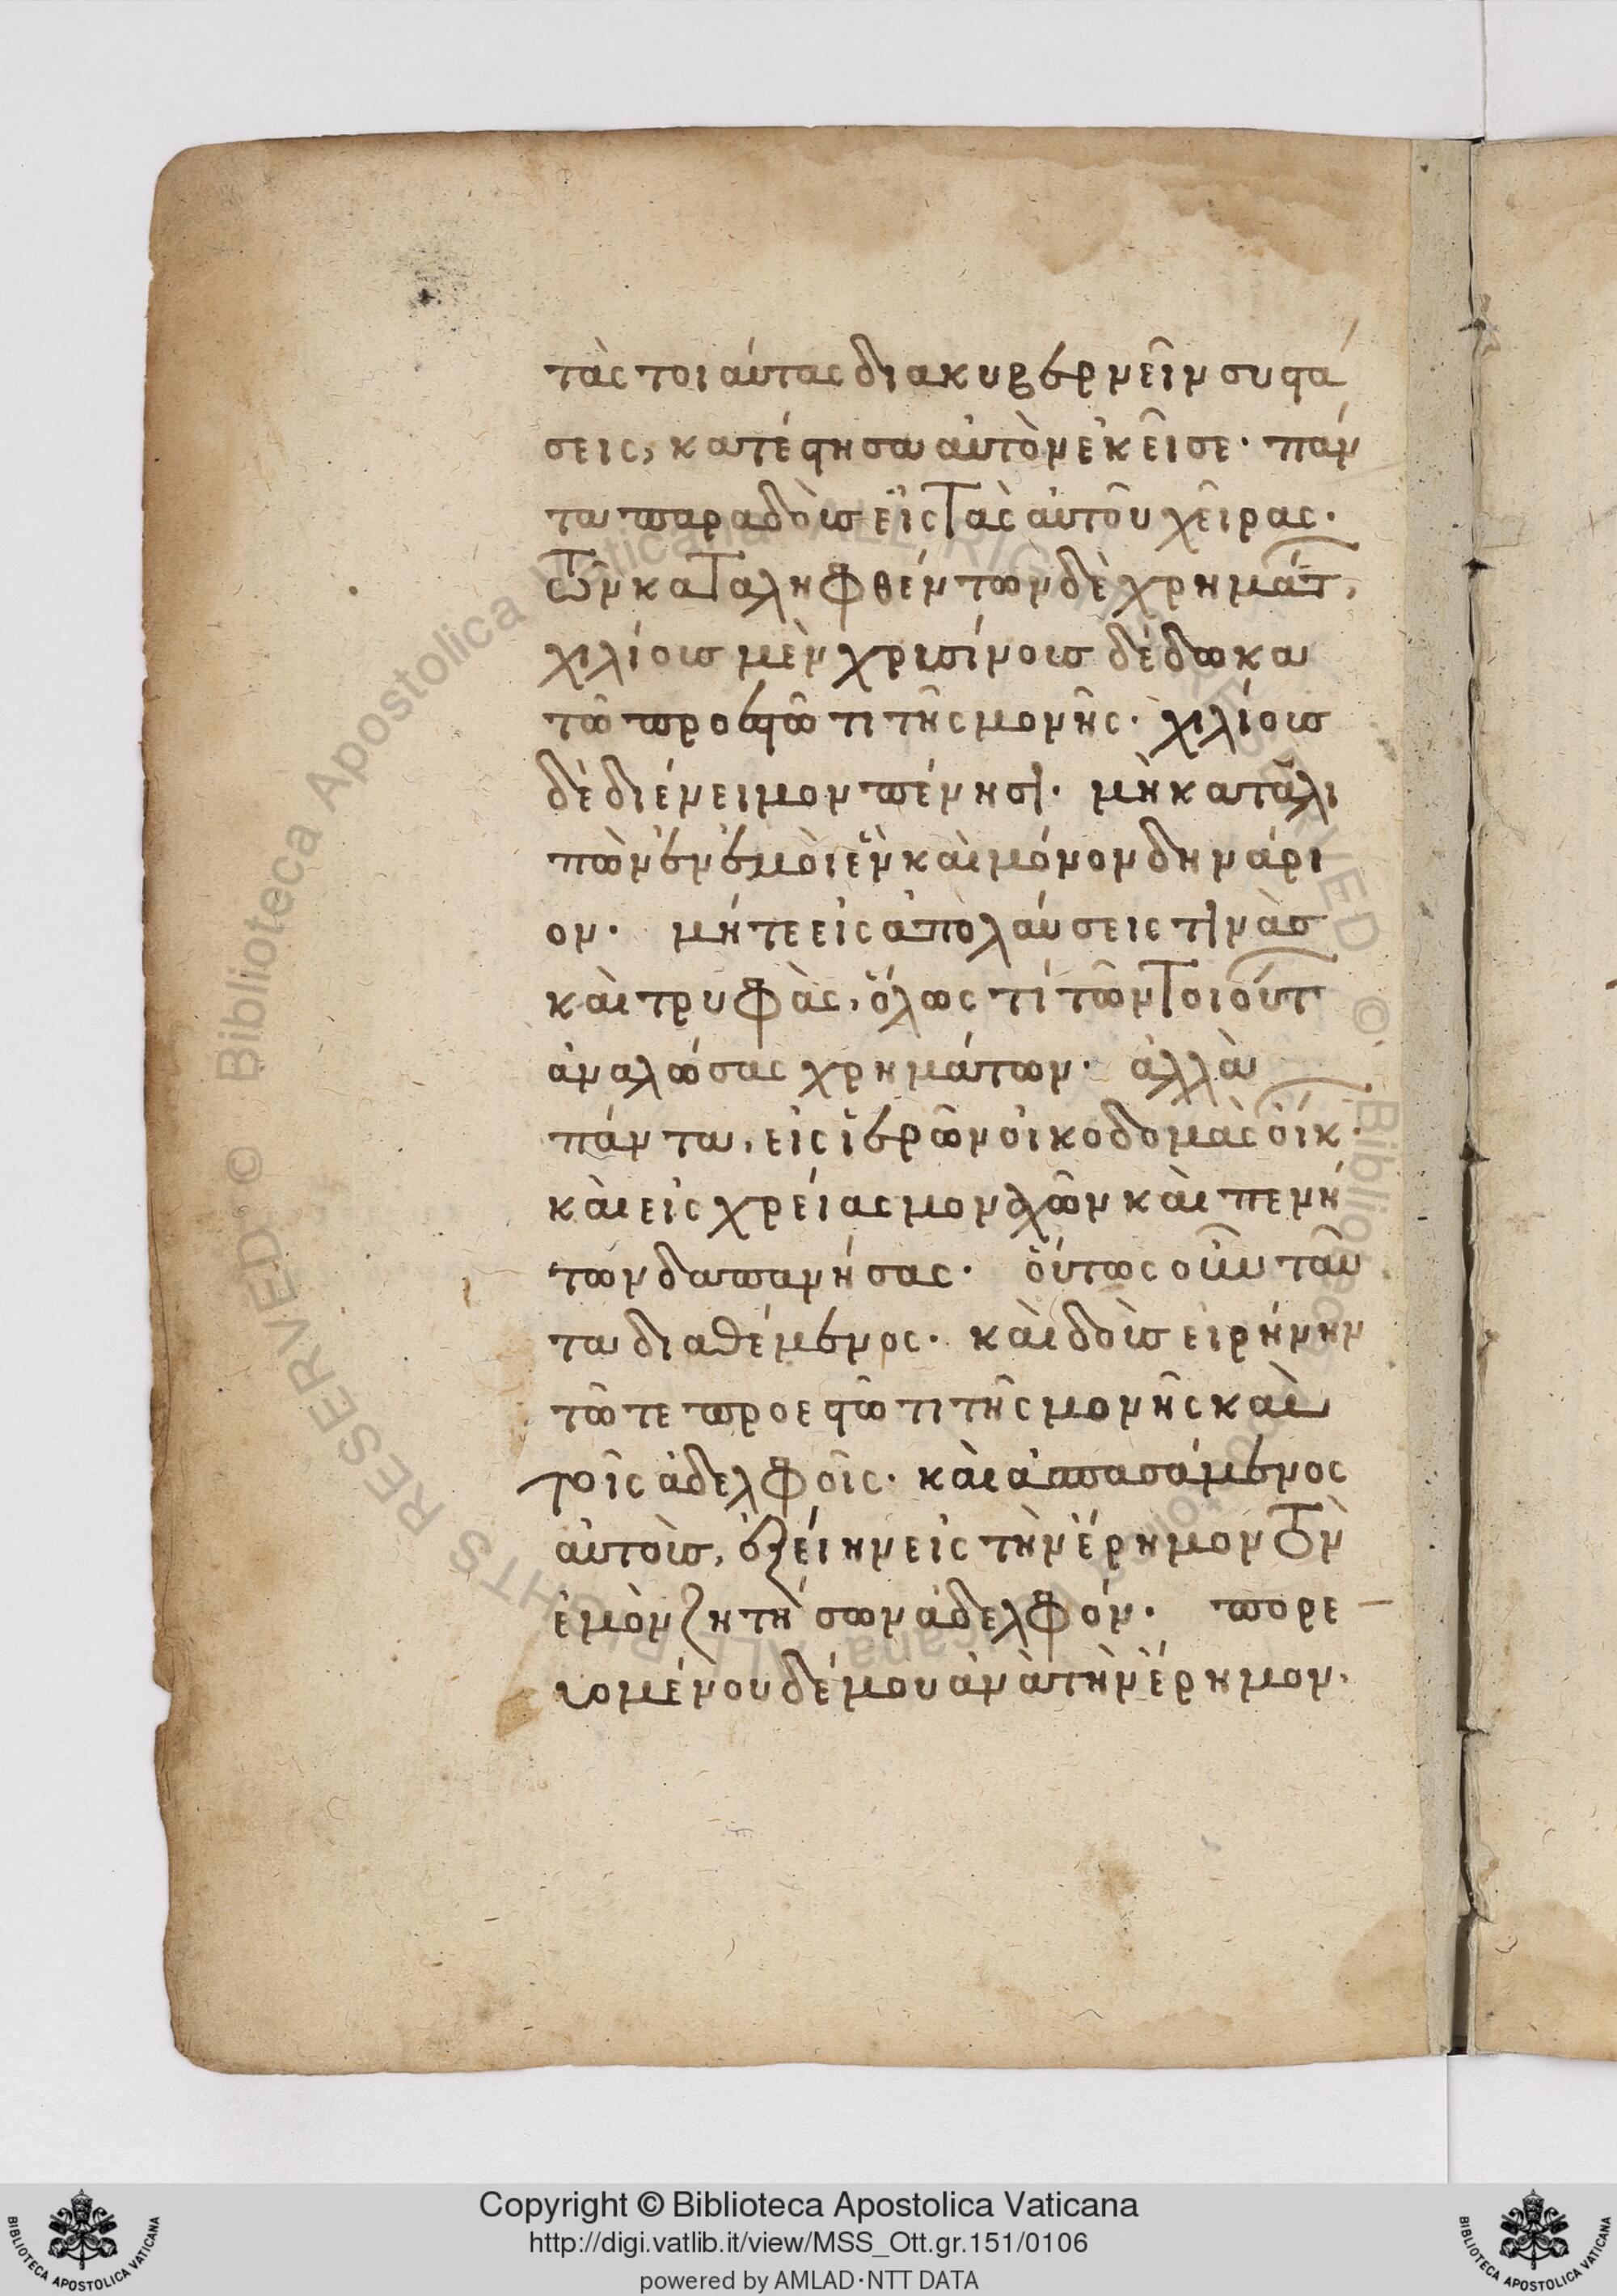 τὰς τοιαύτας διακυβερνεῖν συστά
σεις, κατέστησα αὐτὸν ἐκεῖσε· πάν
τα παραδοὺς εἰς τὰς αὐτοῦ χεῖρας·
τῶν καταληφθέντων δὲ χρημάτ,
χιλίους μὲν χρισίνους δέδωκα
τῶ προεστῶτι τῆς μονῆς· χιλίους
δὲ διένειμον πένησι· μὴ καταλι
πὼν ἐν ἐμοὶ ἓν καὶ μόνον δηνάρι
ον· μήτε εἰς ἀπολαύσεις τινὰσ
καὶ τρυφὰς, ὅλως τί τῶν τοιούτ
ἀναλώσας χρημάτων· ἀλλὰ
πάντα, εἰς ἱερῶν οἰκοδομὰς οἴκ·
καὶ εἰς χρείας μοναχῶν καὶ πενή
των δαπανήσας· οὕτως οὖν ταῦ
τα διαθέμενος· καὶ δοὺς εἰρήνην
τῶ τε προεστῶτι τῆς μονῆς καὶ
τοῖς ἀδελφοῖς· καὶ ἀσπασάμενος
αὐτοὺς, ἐξείην εἰς τὴν ἔρημον τὸν
ἐμὸν ζητήσων ἀδελφόν· πορε
υομένου δέ μου ἀνὰ τὴν ἔρημον,
Copyright © Biblioteca Apostolica Vaticana
http://digi.vatlib.it/view/MSS_Ott.gr.151/0106
powered by AMLAD·NTT DATA
BIBLIOTECA APOSTOLICA VATICANA
BIBLIOTECA APOSTOLICA VATICANA
© Biblioteca Apostolica Vaticana ALL RIGHTS RESERVED
© Biblioteca Apostolica Vaticana ALL RIGHTS RESERVED